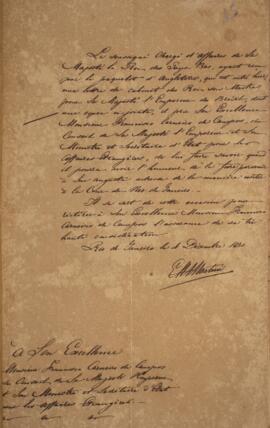 Le soussigné Chargé d'affaires de Sa
Majesté le Roi des Pays Bas, ayant reçu
par le paquebot d'Angleterre, qui est entré hier,
une lettre de cabinet du Roi son Maître
pour Sa Majesté l'Empereur du Brésil, dont
une copie est jointe, il prie Son Excellence
Monsieur Francisco Carneiro de Campos, du
Conseil de Sa Majesté l'Empereur et Son
Ministre et Secrétaire d'Etat pour les
Affaires Etrangères, de lui faire savoir quand
il pourra avoir l'honneur de
à Son auguste de la manière usitée
à la Cour de Rio de Janeiro.
Il se sert de cette occasion pour
réitérer à Son Excellence Monsieur Francisco
Carneiro de Campos l'assurance de sa très
haute considération
Rio de Janeiro le 4 Décembre 1830
Martini
A Son Excellence
Monsieur Francisco Carneiro de Campos
du Conseil de Sa Majesté l'Empereur
et Son Ministre et Secrétaire d'Etat
pour les Affaires Etrangères